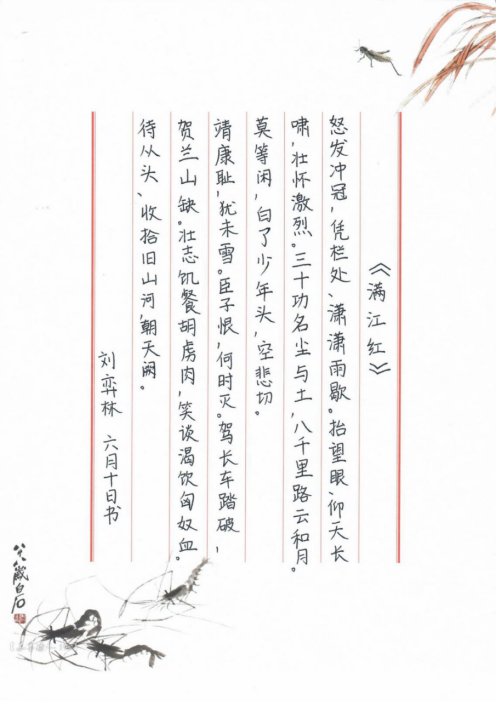 《满江红》
怒发冲冠，凭栏处、潇潇雨歇。抬望眼、仰天长
啸，壮怀激烈。三十功名尘与土，八千里路云和月。
莫等闲，白了少年头，空悲切。
靖康耻，犹未雪。臣子恨，何时灭。驾长车踏破，
贺兰山缺。壮志饥餐胡虏肉，笑谈渴饮匈奴血。
待从头、收拾旧山河，朝天阙。
刘弈林 六月十日书
白石